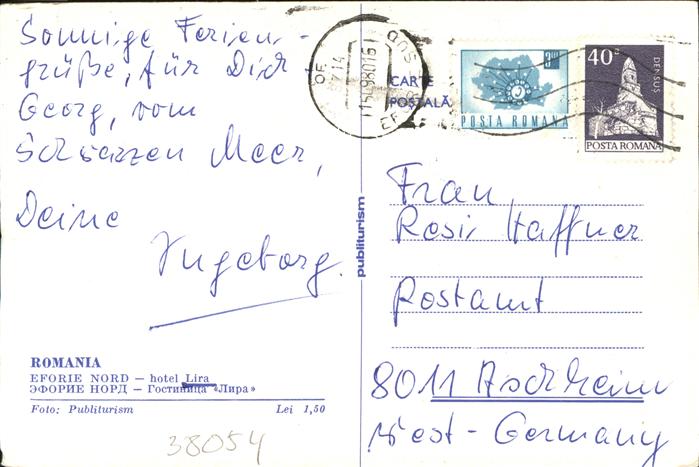 Sonnige Ferien-
grüße, für Dich
Georg, vom
Schwarzen Meer,
Deine
Ingeborg.
ROMANIA
EFORIE NORD — hotel Lira
ЭФОРИЕ НОРД — Гостиница «Лира»
Foto: Publiturism Lei 1,50
38054
publiturism
CARTE
POȘTALĂ
POSTA ROMANA
40
DENSUȘ
POSTA ROMANA
Frau
Rosi Haffner
Postamt
8011 Aschheim
West-Germany